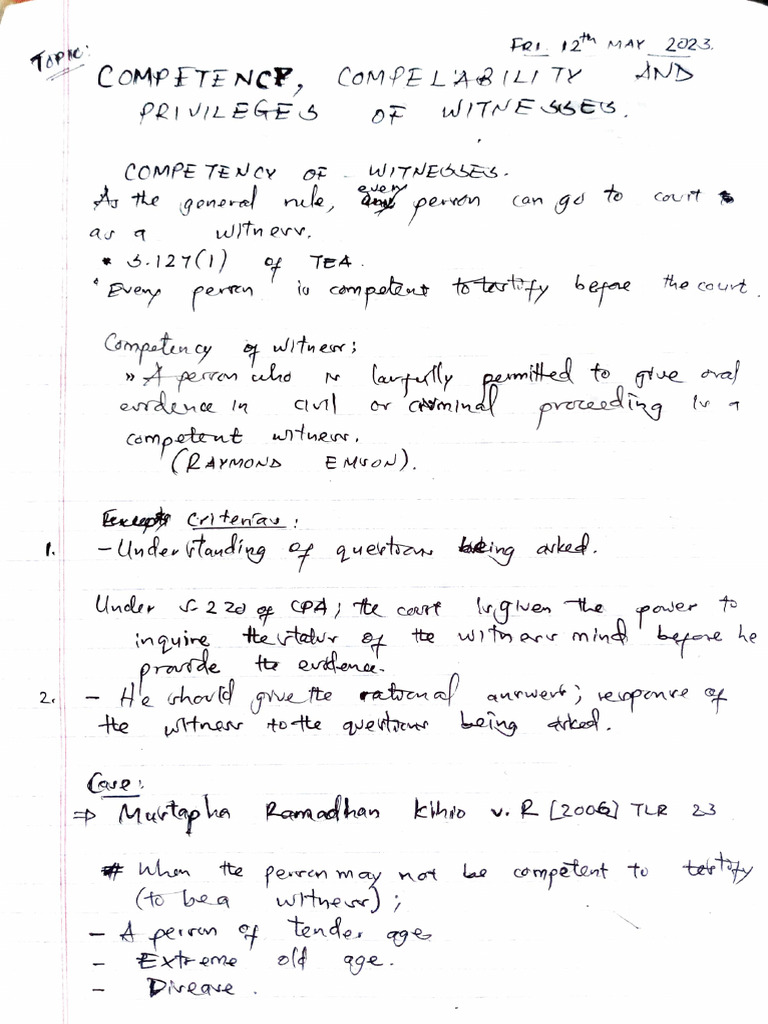 FRI 12th MAY 2023.
TOPIC:
COMPETENCY, COMPELLABILITY AND
PRIVILEGES OF WITNESSES.
COMPETENCY OF WITNESSES.
As the general rule, every person can go to court
as a witness.
* S.127(1) of TEA.
* Every person is competent to testify before the court.
Competency of witness;
» A person who is lawfully permitted to give oral
evidence in civil or criminal proceeding is a
competent witness.
(RAYMOND EMSON).
Criterias:
1. - Understanding of questions being asked.
Under S.220 of CPA; the court is given the power to
inquire the status of the witness mind before he
provide the evidence.
2. - He should give the rational answers; response of
the witness to the questions being asked.
Case:
⇒ Mustapha Ramadhan Kihio v. R [2006] TLR 23
* When the person may not be competent to testify
(to be a witness);
- A person of tender age
- Extreme old age.
- Disease.